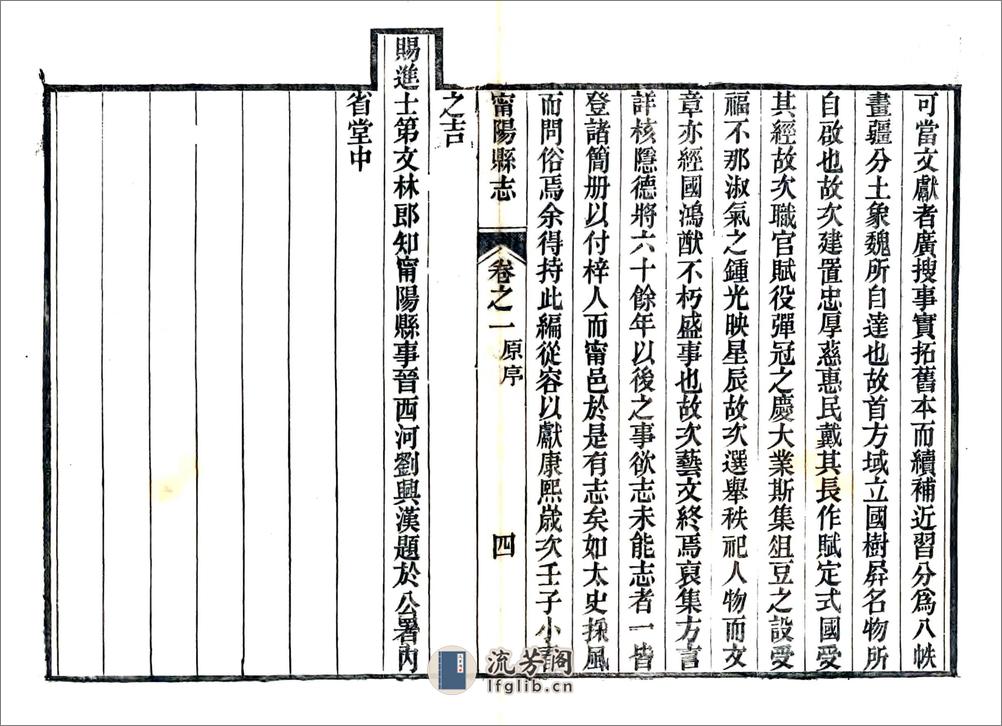 可當文獻者廣搜事實拓舊本而續補近習分爲八帙
畫疆分土象魏所自達也故首方域立國樹屛名物所
自啟也故次建置忠厚慈惠民戴其長作賦定式國受
其經故次職官賦役彈冠之慶大業斯集俎豆之設受
福不那淑氣之鍾光映星辰故次選舉秩祀人物而文
章亦經國鴻猷不朽盛事也故次藝文終焉裒集方言
詳核隱德將六十餘年以後之事欲志未能志者一皆
登諸簡册以付梓人而甯邑於是有志矣如太史採風
而問俗焉余得持此編從容以獻康熙歲次壬子小春
甯陽縣志
卷之一
原序
四
之吉
賜進士第文林郎知甯陽縣事晉西河劉興漢題於公署內
省堂中
流芳閣
lfglib.cn